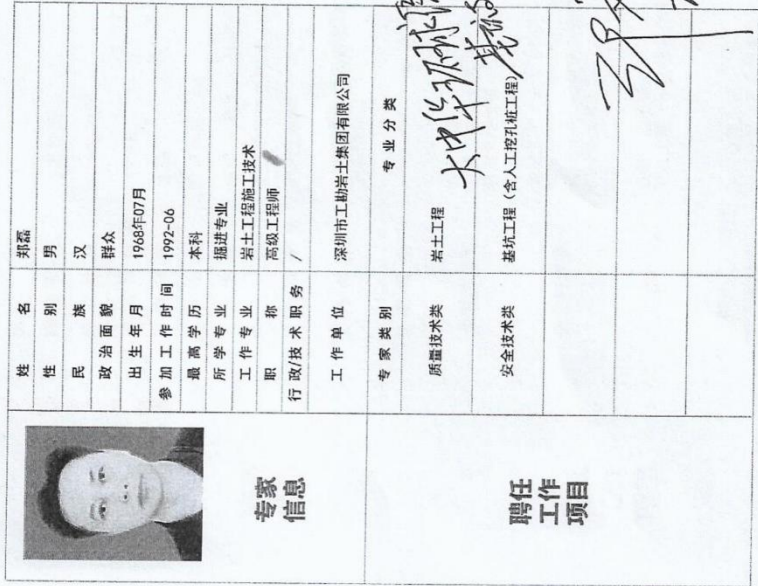 专家
信息
姓名 郑磊
性别 男
民族 汉
政治面貌 群众
出生年月 1968年07月
参加工作时间 1992-06
最高学历 本科
所学专业 掘进专业
工作专业 岩土工程施工技术
职称 高级工程师
行政/技术职务 /
工作单位 深圳市工勘岩土集团有限公司
聘任
工作
项目
专家类别 专业分类
质量技术类 岩土工程
安全技术类 基坑工程（含人工挖孔桩工程）
大中华环球